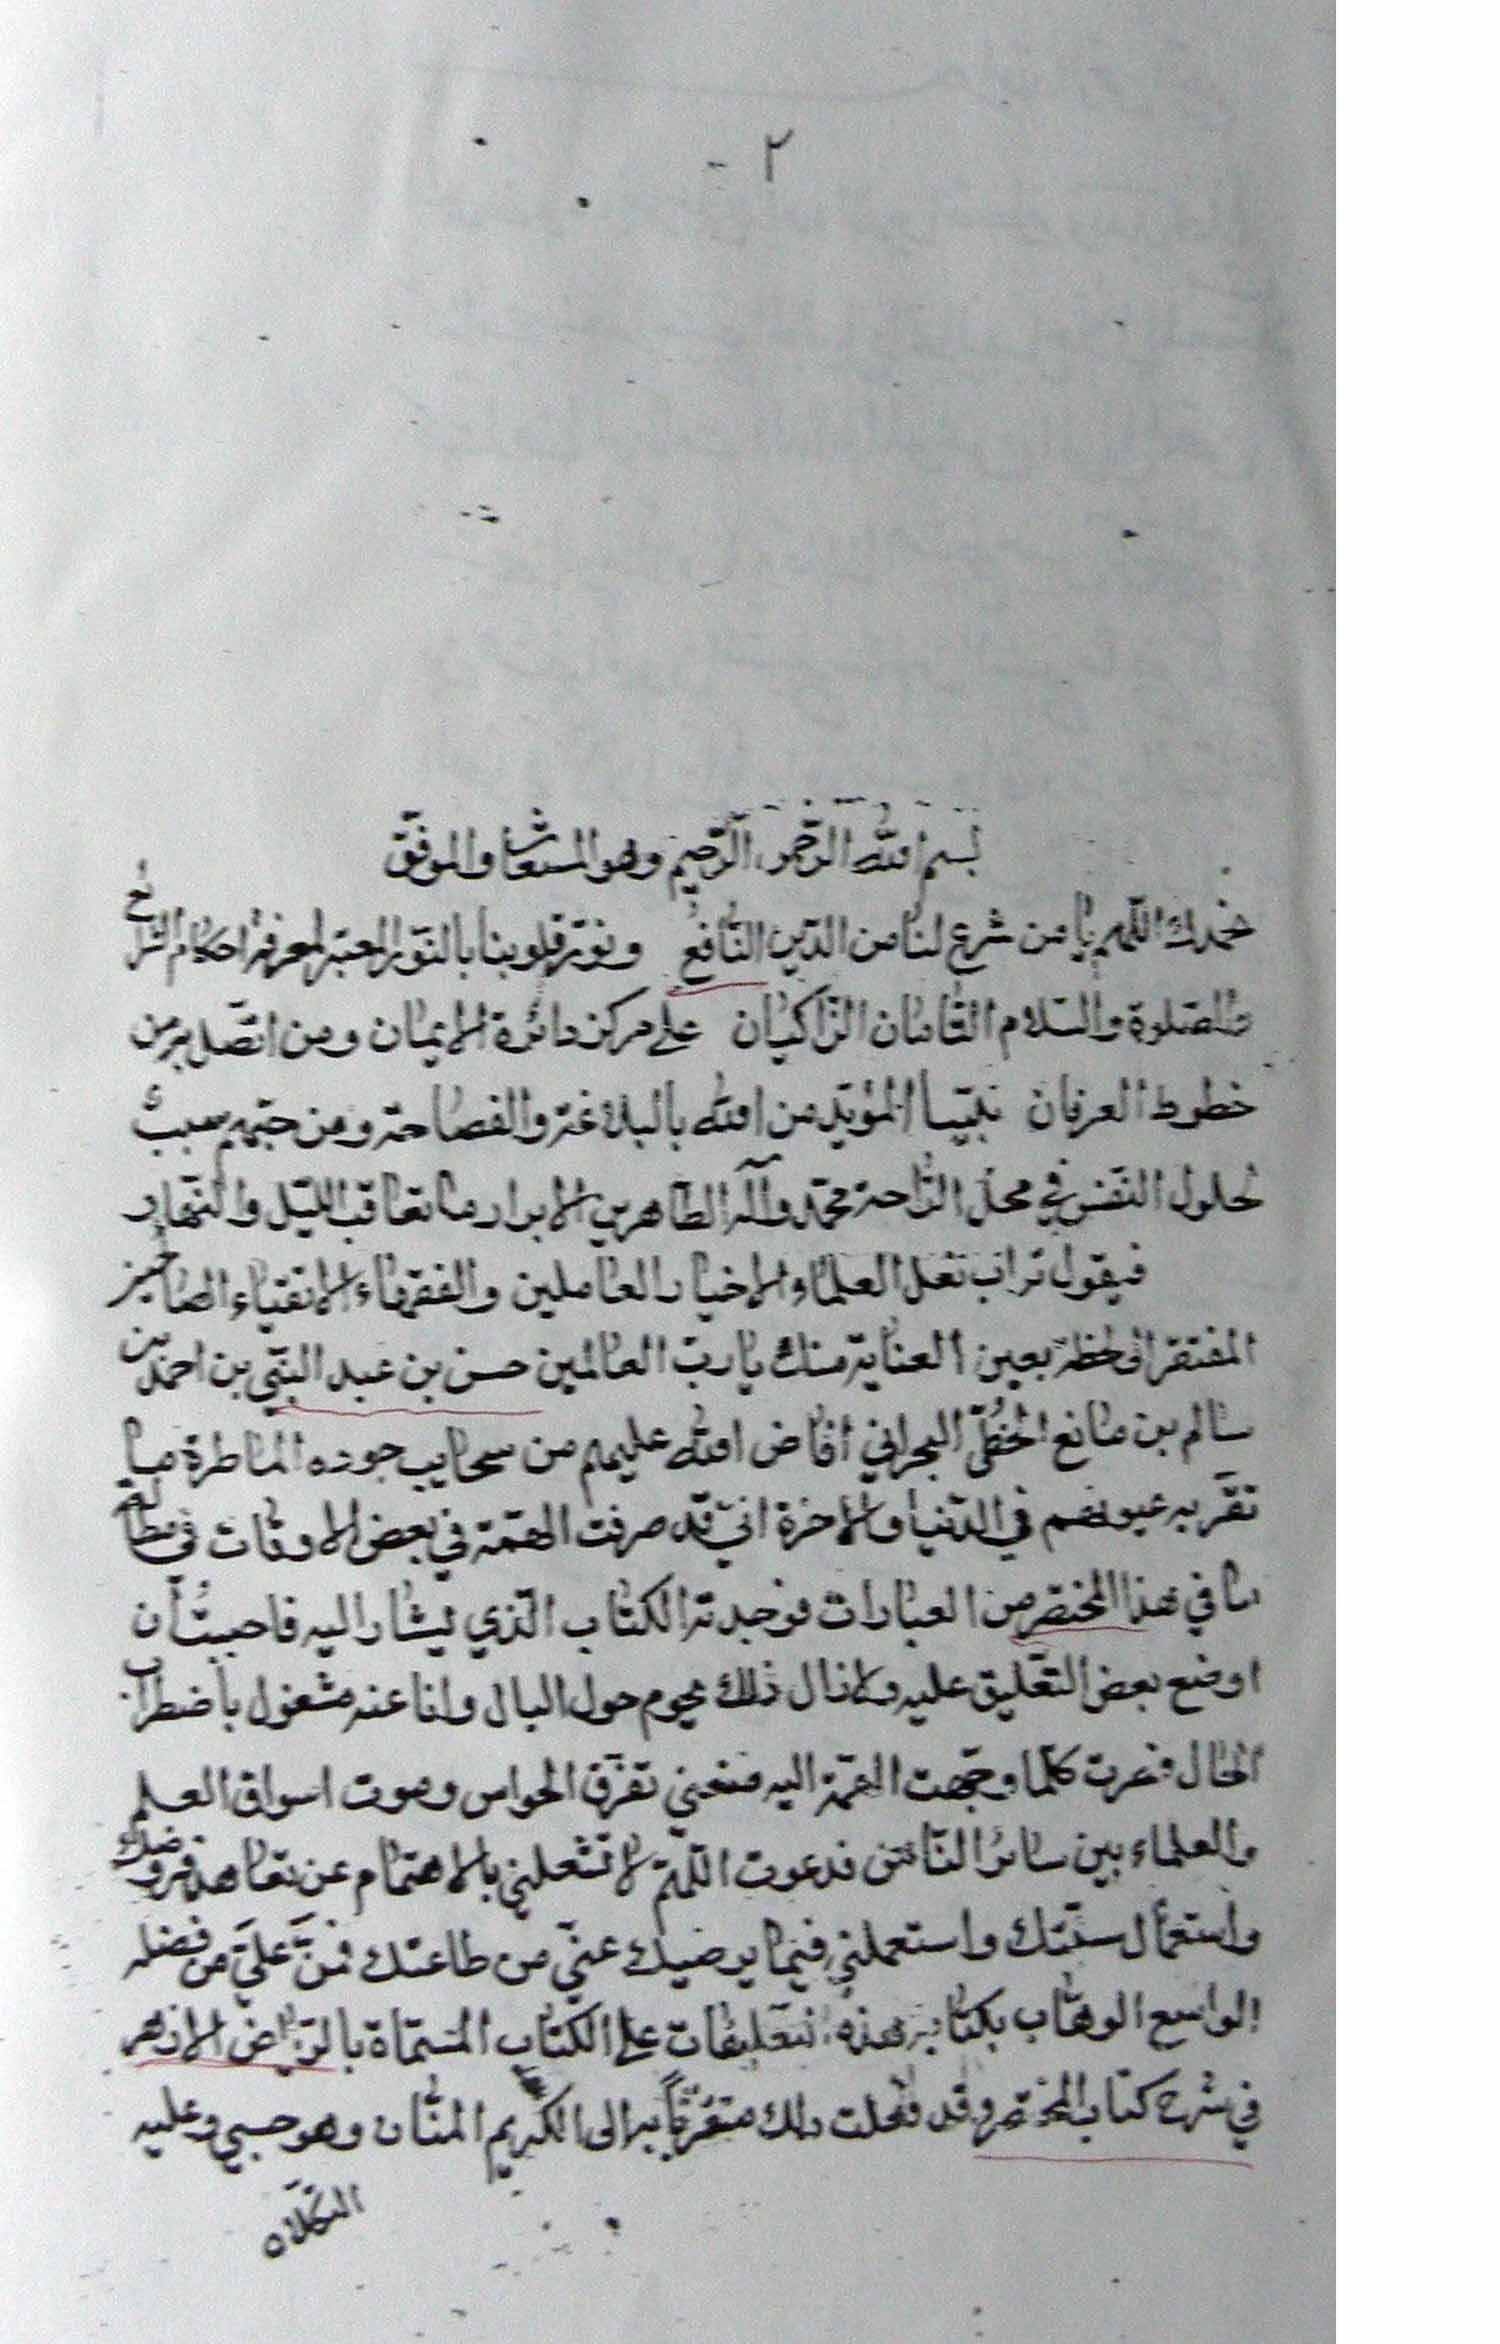 ٢ -
بسم الله الرحمن الرحيم وهو المستعان والموفق
نحمدك اللهم يا من شرع لنا من الدين النافع ونور قلوبنا بالنور المعتبر لمعرفة احكام الشرائع
والصلوة والسلام التامان الزاكيان على مركز دائرة الايمان ومن اتصل به من
خطوط العرفان نبينا المؤيد من الله بالبلاغة والفصاحة ومن حبهم سبب
لحلول النفس في محل الراحة محمد وآله الطاهرين الابرار ما تعاقب الليل والنهار
فيقول تراب نعل العلماء الاخيار العاملين والفقهاء الاتقياء الصالحين
المفتقر الى لحظة بعين العناية منك يا رب العالمين حسن بن عبد النبي بن احمد بن
سالم بن مانع الخطّي البحراني افاض الله عليهم من سحايب جوده الماطرة ما
تقر به عيونهم في الدنيا والاخرة اني قد صرفت الهمة في بعض الاوقات في مطالعة
ما في هذا المختصر من العبارات فوجدته الكتاب الذي يشار اليه فاحببت أن
اوضع بعض التعليق عليه ولازال ذلك يحوم حول البال وانا عنه مشغول باضطراب
الحال فصرت كلما وجهت الهمة اليه منعني تفرق الحواس وموت اسواق العلم
والعلماء بين سائر الناس فدعوت اللهم لا تشغلني بالاهتمام عن تعاهد فروضك
واستعمال سنتك واستعملني فيما يرضيك عنّي من طاعتك فمنّ عليّ من فضله
الواسع الوهاب بكتابة هذه التعليقات على الكتاب المسماة بالرياض الازهر
في شرح كتاب المختصر وقد فعلت ذلك متقرباً به الى الكريم المنان وهو حسبي وعليه
التكلان